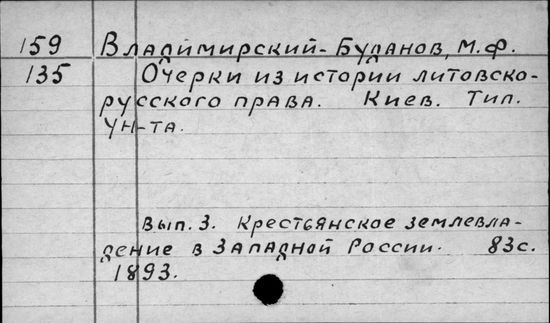 159 Владимирский-Буданов, М.Ф.
135 Очерки из истории литовско-
русского права. Киев. Тип.
Ун-та.
Вып. 3. Крестьянское землевла-
дение в Западной России. 83с.
1893.